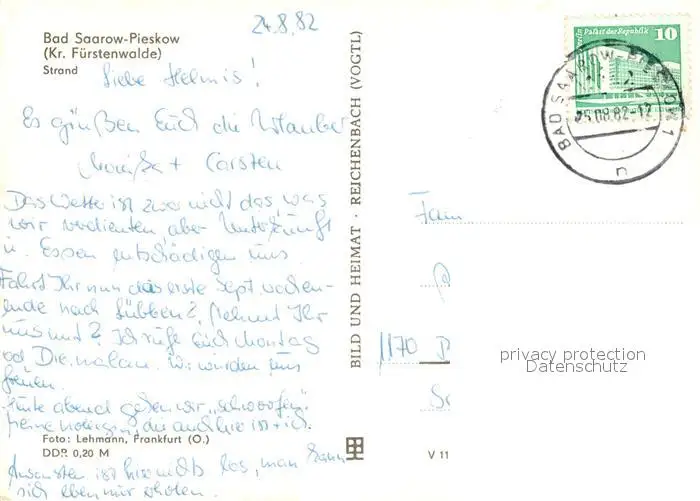 24.8.82
Bad Saarow-Pieskow
(Kr. Fürstenwalde)
Strand
Liebe Helmis!
Es grüßen Euch die Urlauber
+ Carsten
Das Wetter ist zwar nicht das, was
wir verdienten, aber Unterkunft
u. Essen entschädigen uns.
Fahrt Ihr nun das erste Sept. wochen-
ende nach Lübben? Nehmt Ihr
uns mit? Ich rufe Euch Montag
od. Die. mal an. Wir würden uns
freuen.
Heute abend gehen wir „schwoofen"
meine Kollegin, die auch hier ist + ich.
Foto: Lehmann, Frankfurt (O.)
DDR 0,20 M
Ansonsten ist hier nichts los, man kann
sich eben nur erholen.
BILD UND HEIMAT · REICHENBACH (VOGTL)
V 11
Berlin Palast der Republik
10
BAD SAAROW-PIESKOW 1
25.08.82-12
n
Fam
1170 B
privacy protection
Datenschutz